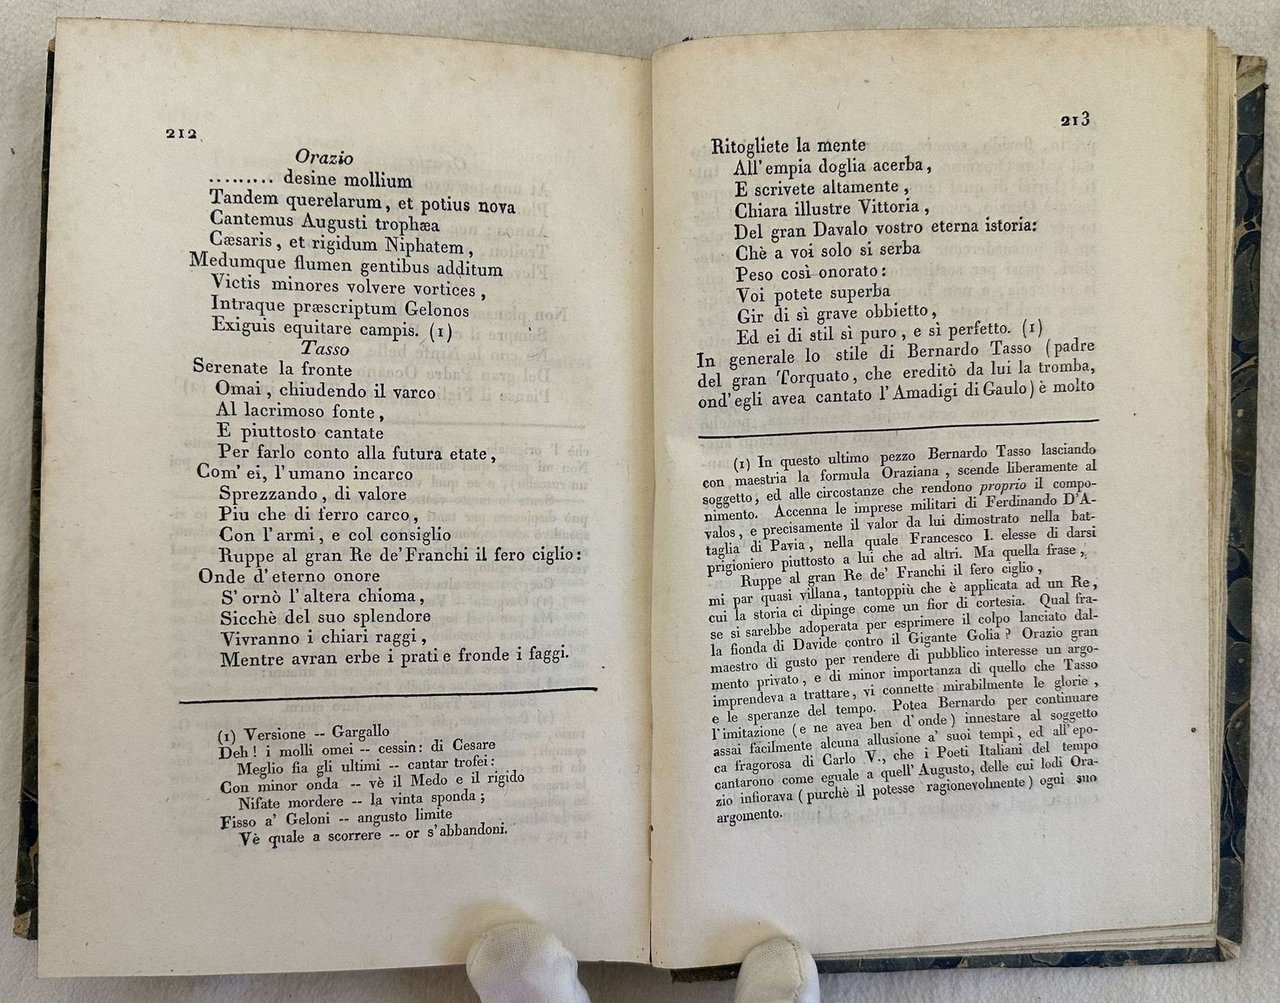 212
Orazio
......... desine mollium
Tandem querelarum, et potius nova
Cantemus Augusti trophæa
Cæsaris, et rigidum Niphatem,
Medumque flumen gentibus additum
Victis minores volvere vortices,
Intraque præscriptum Gelonos
Exiguis equitare campis. (1)
Tasso
Serenate la fronte
Omai, chiudendo il varco
Al lacrimoso fonte,
E piuttosto cantate
Per farlo conto alla futura etate,
Com' ei, l'umano incarco
Sprezzando, di valore
Piu che di ferro carco,
Con l'armi, e col consiglio
Ruppe al gran Re de' Franchi il fero ciglio:
Onde d'eterno onore
S'ornò l'altera chioma,
Sicchè del suo splendore
Vivranno i chiari raggi,
Mentre avran erbe i prati e fronde i faggi.
(1) Versione -- Gargallo
Deh! i molli omei -- cessin: di Cesare
Meglio fia gli ultimi -- cantar trofei:
Con minor onda -- vè il Medo e il rigido
Nifate mordere -- la vinta sponda;
Fisso a' Geloni -- angusto limite
Vè quale a scorrere -- or s'abbandoni.
213
Ritogliete la mente
All'empia doglia acerba,
E scrivete altamente,
Chiara illustre Vittoria,
Del gran Davalo vostro eterna istoria:
Chè a voi solo si serba
Peso così onorato:
Voi potete superba
Gir di sì grave obbietto,
Ed ei di stil sì puro, e sì perfetto. (1)
In generale lo stile di Bernardo Tasso (padre
del gran Torquato, che ereditò da lui la tromba,
ond'egli avea cantato l'Amadigi di Gaulo) è molto
(1) In questo ultimo pezzo Bernardo Tasso lasciando
con maestria la formula Oraziana, scende liberamente al
soggetto, ed alle circostanze che rendono proprio il compo-
nimento. Accenna le imprese militari di Ferdinando D'A-
valos, e precisamente il valor da lui dimostrato nella bat-
taglia di Pavia, nella quale Francesco I. elesse di darsi
prigioniero piuttosto a lui che ad altri. Ma quella frase,
Ruppe al gran Re de' Franchi il fero ciglio,
mi par quasi villana, tantoppiù che è applicata ad un Re,
cui la storia ci dipinge come un fior di cortesia. Qual fra-
se si sarebbe adoperata per esprimere il colpo lanciato dal-
la fionda di Davide contro il Gigante Golia? Orazio gran
maestro di gusto per rendere di pubblico interesse un argo-
mento privato, e di minor importanza di quello che Tasso
imprendeva a trattare, vi connette mirabilmente le glorie,
e le speranze del tempo. Potea Bernardo per continuare
l'imitazione (e ne avea ben d'onde) innestare al soggetto
assai facilmente alcuna allusione a' suoi tempi, ed all'epo-
ca fragorosa di Carlo V., che i Poeti Italiani del tempo
cantarono come eguale a quell'Augusto, delle cui lodi Ora-
zio infiorava (purchè il potesse ragionevolmente) ogni suo
argomento.